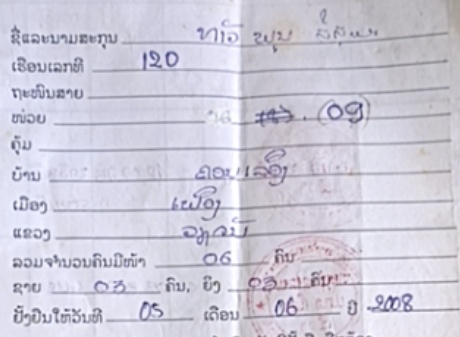 ຊື່ແລະນາມສະກຸນ ທ້າວ ພູນ
ເຮືອນເລກທີ 120
ຖະໜົນສາຍ
ໜ່ວຍ (09)
ຄຸ້ມ
ບ້ານ
ເມືອງ ເຟືອງ
ແຂວງ
ລວມຈຳນວນຄົນມີໜ້າ 06 ຄົນ
ຊາຍ 03 ຄົນ, ຍິງ 03 ຄົນ
ຢັ້ງຢືນໃຫ້ວັນທີ 05 ເດືອນ 06 ປີ 2008